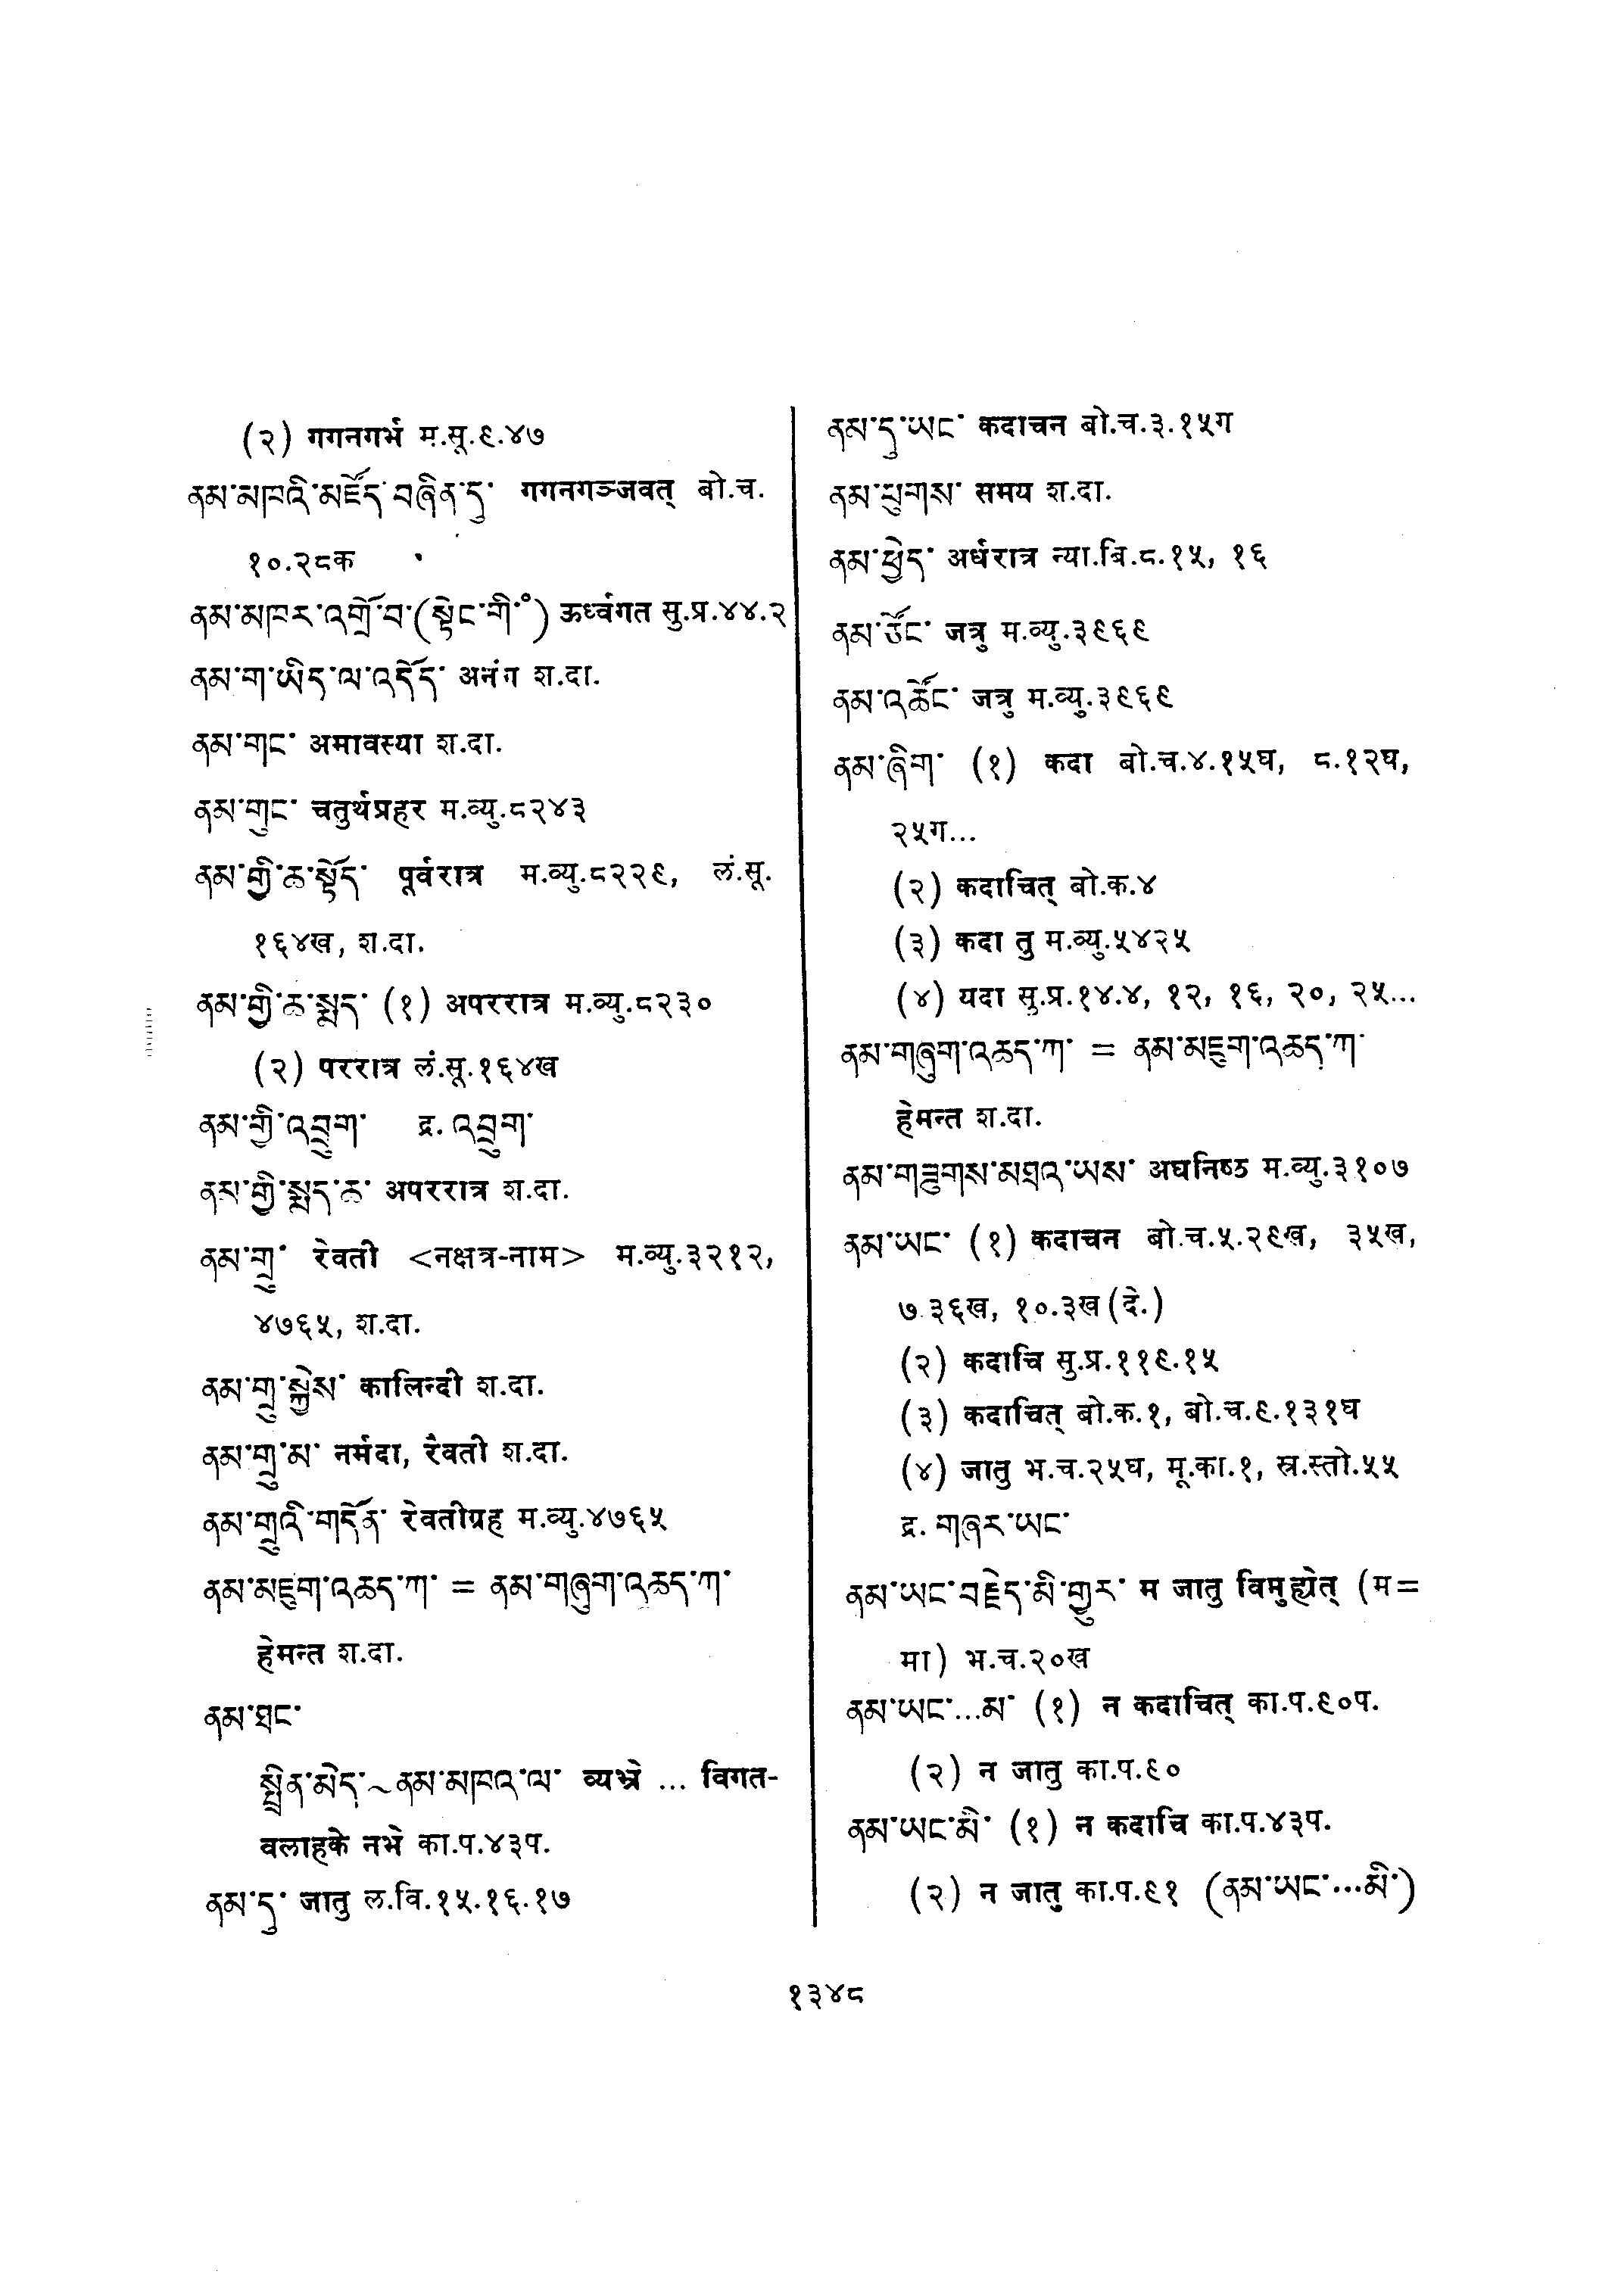 (२) गगनगर्भ म.सू.९.४७
ནམ་མཁའི་མཛོད་བཞིན་དུ་ गगनगञ्जवत् बो.च.
१०.२८क
ནམ་མཁར་འགྲོ་བ་(སྟེང་གི་°) ऊर्ध्वगत सु.प्र.४४.२
ནམ་ག་ཡིད་ལ་འདོད་ अनंग श.दा.
ནམ་གང་ अमावस्या श.दा.
ནམ་གུང་ चतुर्थप्रहर म.व्यु.८२४३
ནམ་གྱི་ཆ་སྟོད་ पूर्वरात्र म.व्यु.८२२९, लं.सू.
१६४ख, श.दा.
ནམ་གྱི་ཆ་སྨད་ (१) अपररात्र म.व्यु.८२३०
(२) पररात्र लं.सू.१६४ख
ནམ་གྱི་འབྲུག་ द्र. འབྲུག་
ནམ་གྱི་སྨད་ཆ་ अपररात्र श.दा.
ནམ་གྲུ་ रेवती <नक्षत्र-नाम> म.व्यु.३२१२,
४७६५, श.दा.
ནམ་གྲུ་སྐྱེས་ कालिन्दी श.दा.
ནམ་གྲུ་མ་ नर्मदा, रैवती श.दा.
ནམ་གྲུའི་གདོན་ रेवतीग्रह म.व्यु.४७६५
ནམ་མཇུག་འཆད་ཀ་ = ནམ་གཞུག་འཆད་ཀ་
हेमन्त श.दा.
ནམ་ཐང་
སྤྲིན་མེད་~ནམ་མཁའ་ལ་ व्यभ्रे ... विगत-
वलाहके नभे का.प.४३प.
ནམ་དུ་ जातु ल.वि.१५.१६.१७
ནམ་དུ་ཡང་ कदाचन बो.च.३.१५ग
ནམ་ཕུགས་ समय श.दा.
ནམ་ཕྱེད་ अर्धरात्र न्या.बि.८.१५, १६
ནམ་ཙོང་ जत्रु म.व्यु.३९६९
ནམ་འཚོང་ जत्रु म.व्यु.३९६९
ནམ་ཞིག་ (१) कदा बो.च.४.१५घ, ८.१२घ,
२५ग...
(२) कदाचित् बो.क.४
(३) कदा तु म.व्यु.५४२५
(४) यदा सु.प्र.१४.४, १२, १६, २०, २५...
ནམ་གཞུག་འཆད་ཀ་ = ནམ་མཇུག་འཆད་ཀ་
हेमन्त श.दा.
ནམ་གཟུགས་མཐའ་ཡས་ अघनिष्ठ म.व्यु.३१०७
ནམ་ཡང་ (१) कदाचन बो.च.५.२९ख, ३५ख,
७.३६ख, १०.३ख(दे.)
(२) कदाचि सु.प्र.११९.१५
(३) कदाचित् बो.क.१, बो.च.९.१३१घ
(४) जातु भ.च.२५घ, मू.का.१, स्र.स्तो.५५
द्र. གཞར་ཡང་
ནམ་ཡང་བརྗེད་མི་གྱུར་ म जातु विमुह्येत् (म=
मा) भ.च.२०ख
ནམ་ཡང་...མ་ (१) न कदाचित् का.प.९०प.
(२) न जातु का.प.९०
ནམ་ཡང་མི་ (१) न कदाचि का.प.४३प.
(२) न जातु का.प.९१ (ནམ་ཡང་...མི་)
१३४८